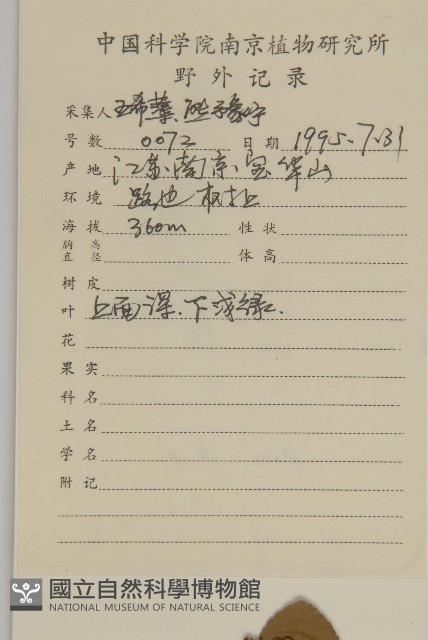 中国科学院南京植物研究所
野外记录
采集人 王希蕖、熊豫宁
号数 0072 日期 1995.7.31
产地 江苏南京宝华山
环境 路边
海拔 360m 性状
胸高直径 体高
树皮
叶 上面深、下浅绿.
花
果实
科名
土名
学名
附记
國立自然科學博物館
NATIONAL MUSEUM OF NATURAL SCIENCE